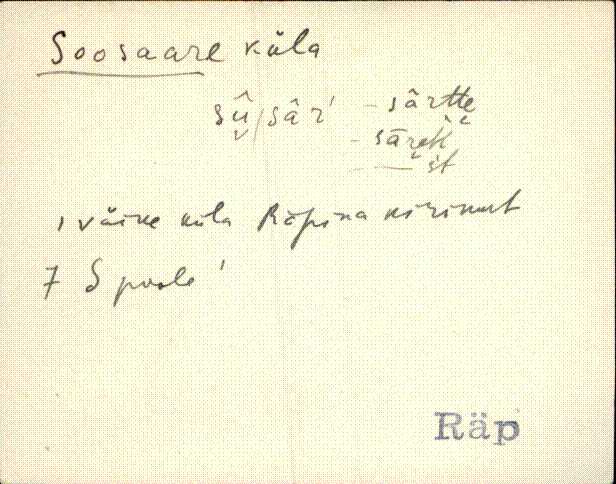 Soosaare küla
sū̬̂/sâŕ - sârtte̬
- sāre̬k̀
- ── st̀
, väike küla Räpina kirikust
7 S poole '
Räp